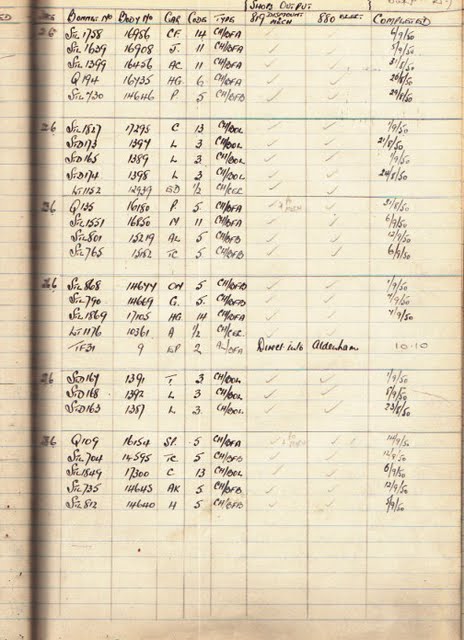 SHOPS OUTPUT
BONNET NO BODY NO GAR CODE TYPE 819 DISMOUNT MECH 880 COMPLETED
26 STL1758 16986 CF 14 CH/OFA 6/9/50
STL1629 16908 J. 11 CH/OFA 5/9/50
STL1399 16456 AC 11 CH/OFA 31/8/50
Q194 16435 HG 6 CH/OFA
STL730 14646 P. 5 CH/OFB 29/8/50
26 STL1827 17295 C 13 CH/BOL 7/9/50
STD173 1394 L 3 CH/BOL 21/8/50
STD165 1389 L 3 CH/BOL 1/9/50
STD174 1398 L 3 CH/BOL 24/8/50
LT1152 12939 1/2
26 Q135 16180 P. 5 CH/OFA 31/8/50
STL1551 16850 M 11 CH/OFA 6/9/50
STL801 15219 AL 5 CH/OFB 12/9/50
STL765 15182 TC 5 CH/OFB 6/9/50
26 STL868 14644 ON 5 CH/OFB 1/9/50
STL790 14669 G. 5 CH/OFB 4/9/50
STL1869 17105 HG 14 CH/OFA 4/9/50
LT1176 10361 A 1/2
TF31 9 EP 2 Direct into Aldenham 10.10
26 STD164 1391 T 3 CH/BOL 1/9/50
STD168 1392 L 3 CH/BOL 1/9/50
STD163 1387 L 3 CH/BOL 23/8/50
26 Q109 16154 SP. 5 CH/OFA 14/9/50
STL704 14595 TC 5 CH/OFB 12/9/50
STL1849 17300 C 13 CH/BOL 6/9/50
STL735 14645 AK 5 CH/OFB 12/9/50
STL812 14640 H 5 CH/OFB 5/9/50